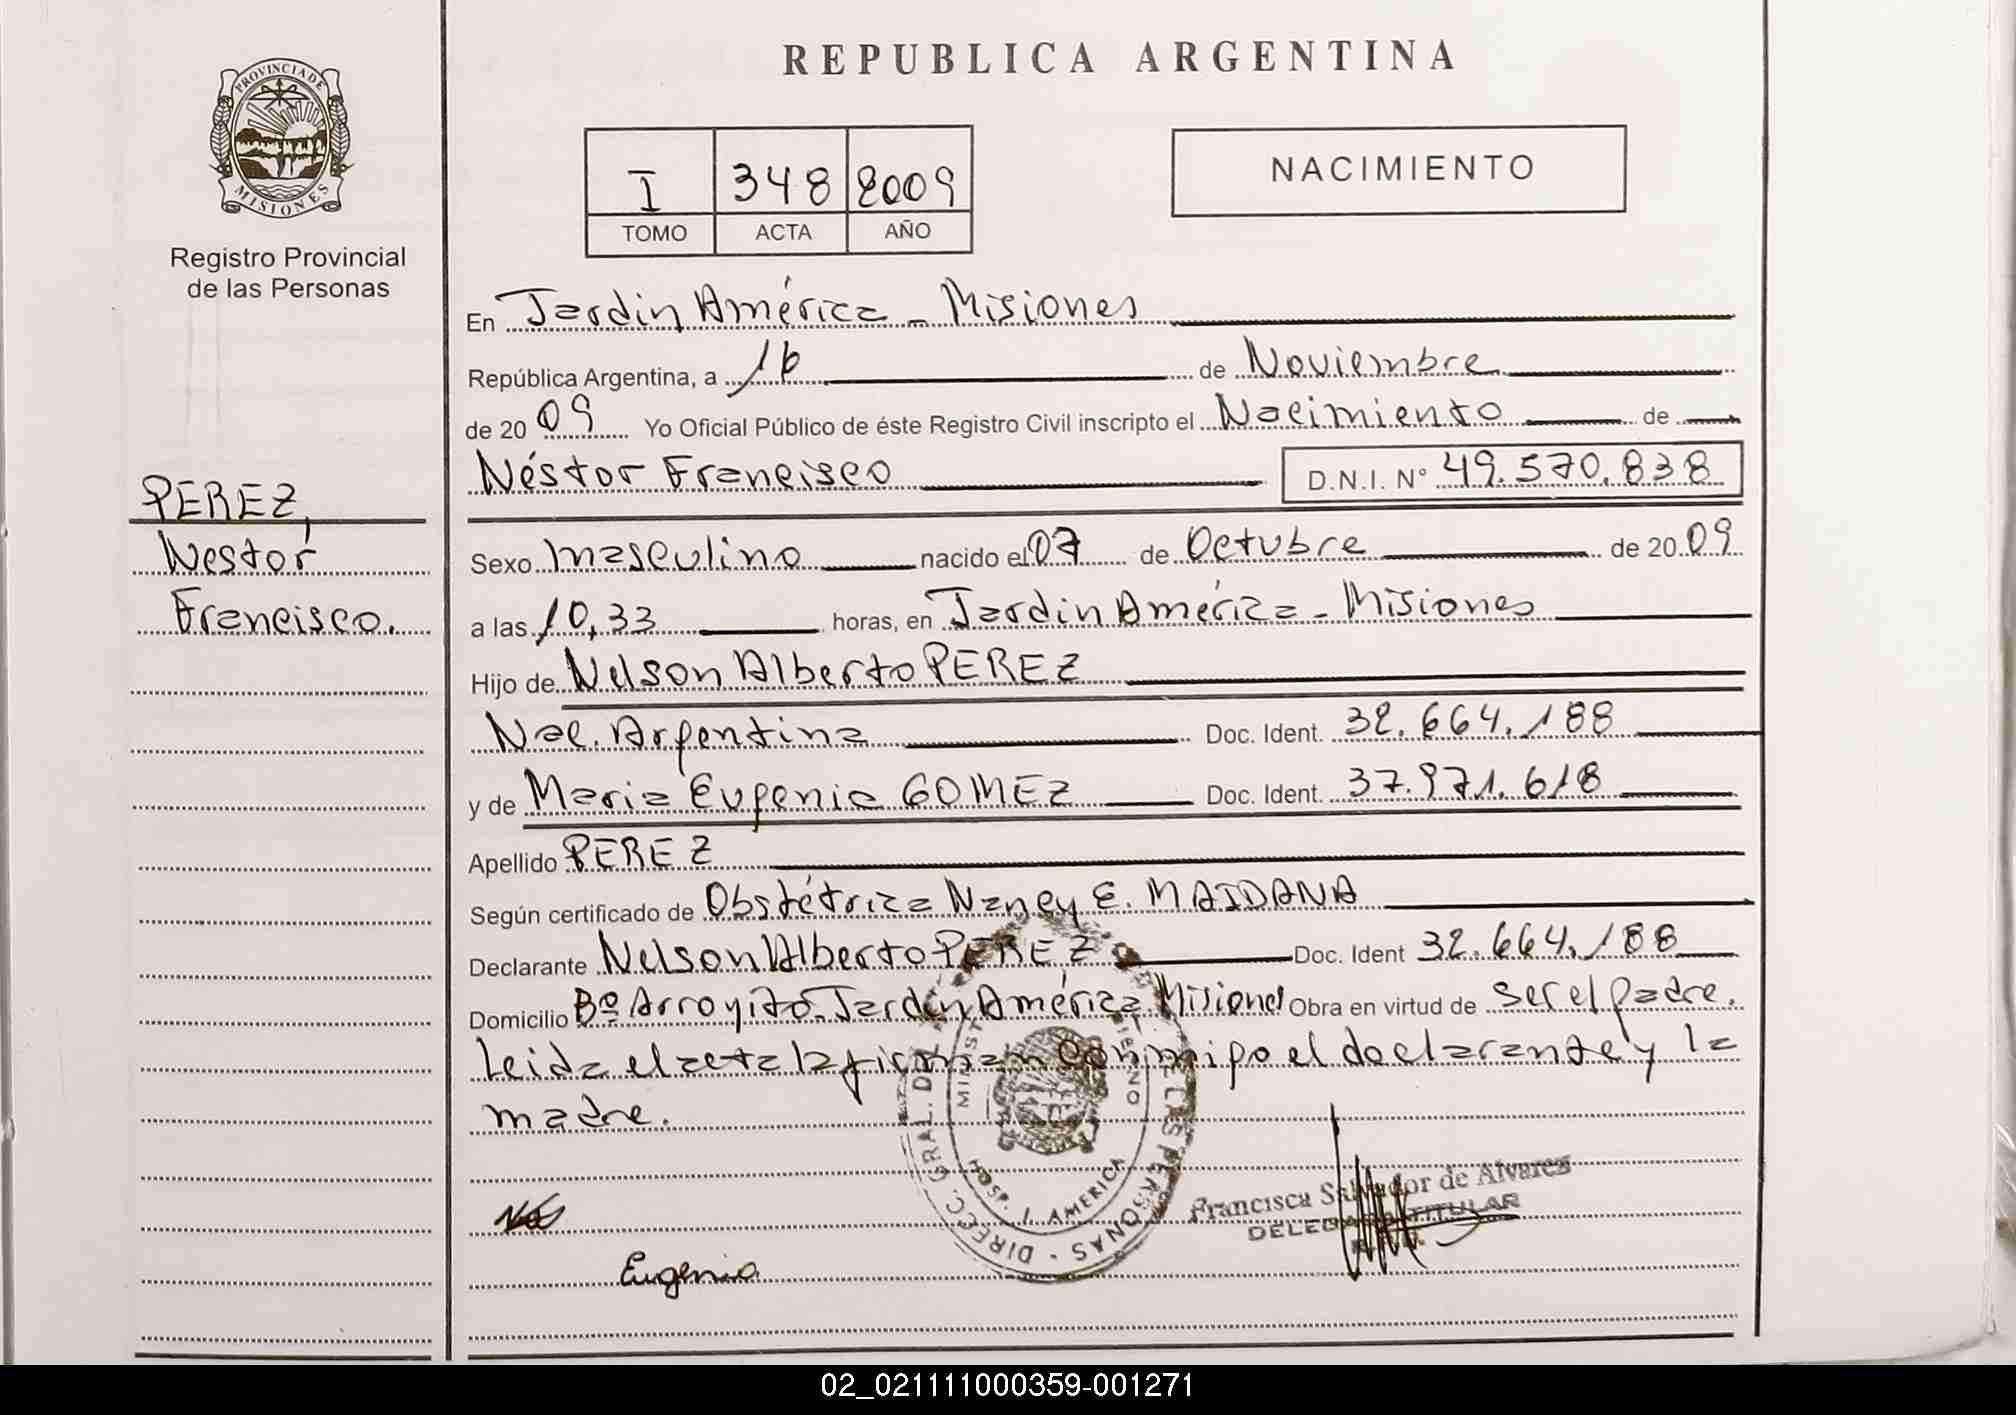 REPUBLICA ARGENTINA
PROVINCIA DE MISIONES
Registro Provincial
de las Personas
I 348 2009
TOMO ACTA AÑO
NACIMIENTO
En Jardin América - Misiones
República Argentina, a 16 de Noviembre
de 20 09 Yo Oficial Público de éste Registro Civil inscripto el Nacimiento de
Néstor Francisco D.N.I. N° 49.570.838
PEREZ,
Nestor
Francisco.
Sexo masculino nacido el 07 de Octubre de 20 09
a las 10,33 horas, en Jardin América - Misiones
Hijo de Nelson Alberto PEREZ
Nac. Argentina Doc. Ident. 32.664.188
y de Maria Eugenia GOMEZ Doc. Ident. 37.971.618
Apellido PEREZ
Según certificado de Obstétrica Nancy E. MAIDANA
Declarante Nelson Alberto PEREZ Doc. Ident 32.664.188
Domicilio Bº Arroyito - Jardin América Misiones Obra en virtud de ser el padre.
Leida el acta la firman conmigo el declarante y la
madre.
DIRECC. GRAL. DE LAS PERSONAS
HOSP. J. AMERICA
Francisca Salvador de Alvarez
DELEGADA TITULAR
Eugenia
02_021111000359-001271